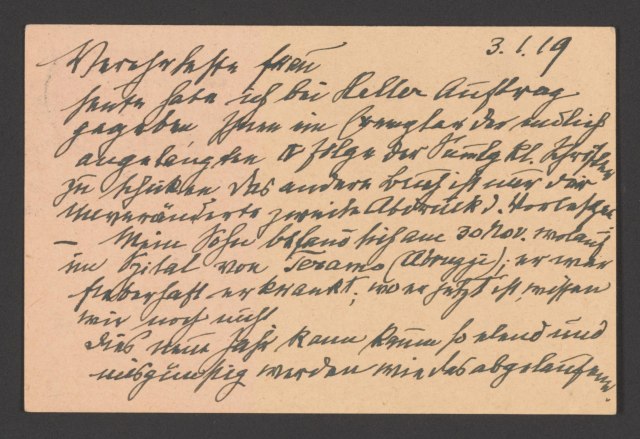 3.1.19
Verehrteste Frau
heute habe ich bei Heller Auftrag
gegeben Ihnen ein Exemplar der endlich
angelangten IV Folge der Samlg kl. Schriften
zu schicken Das andere Buch ist nur der
unveränderte zweite Abdruck d. Vorlesgen
– Mein Sohn befand sich am 30 Nov. wolauf
im Spital von Teramo (Abruzzi); er war
fieberhaft erkrankt; wo er jetzt ist, wissen
wir noch nicht
Dies neue Jahr kann kaum so elend und
misgünstig werden wie das abgelaufene.